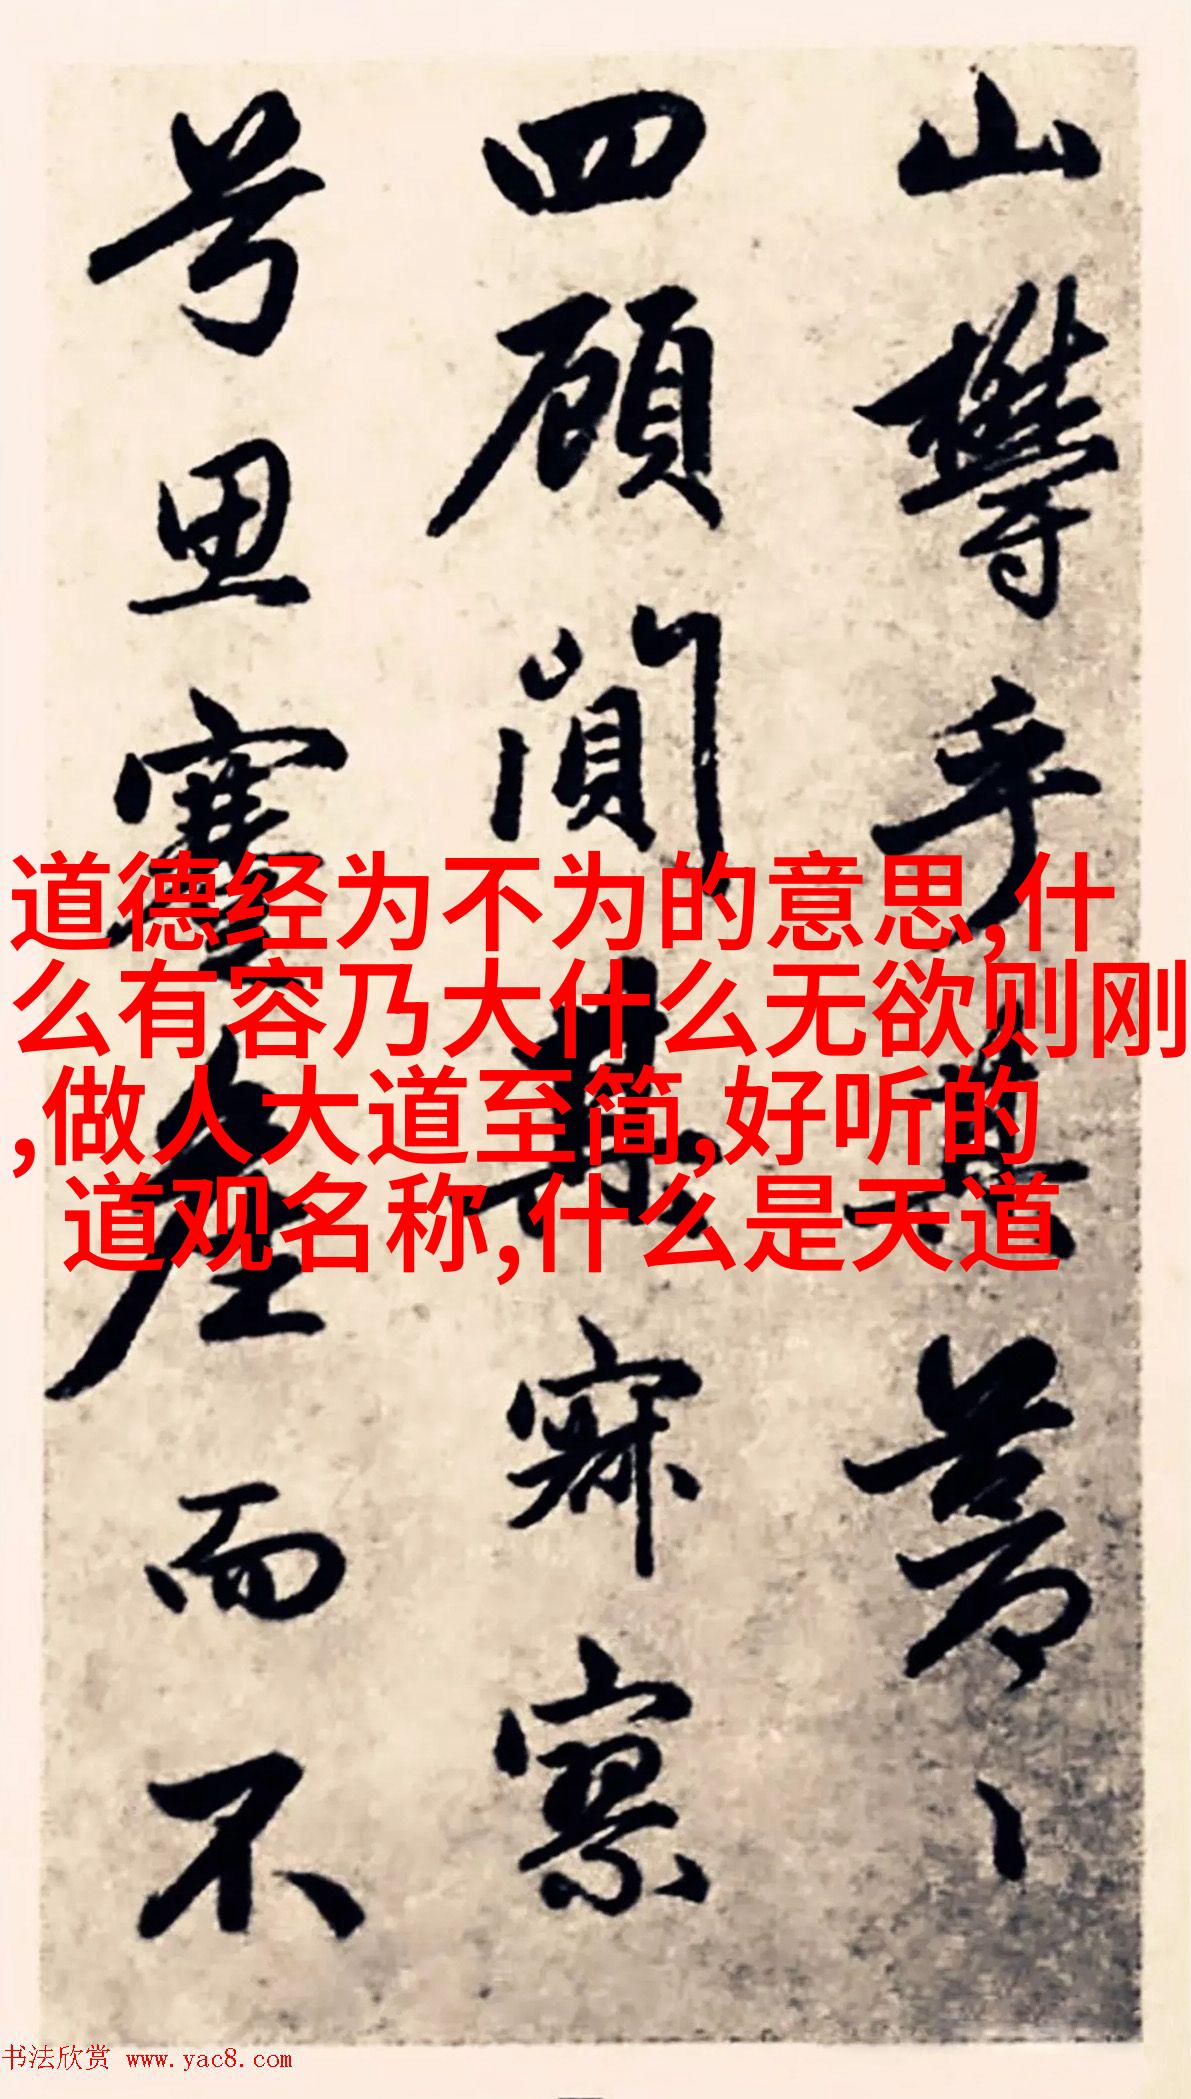 山欝乎其蒼〻
四顧闃其寂寥
兮思蹇產而不
道德经为不为的意思,什
么有容乃大什么无欲则刚
,做人大道至简,好听的
道观名称,什么是天道
书法欣赏 www.yac8.com